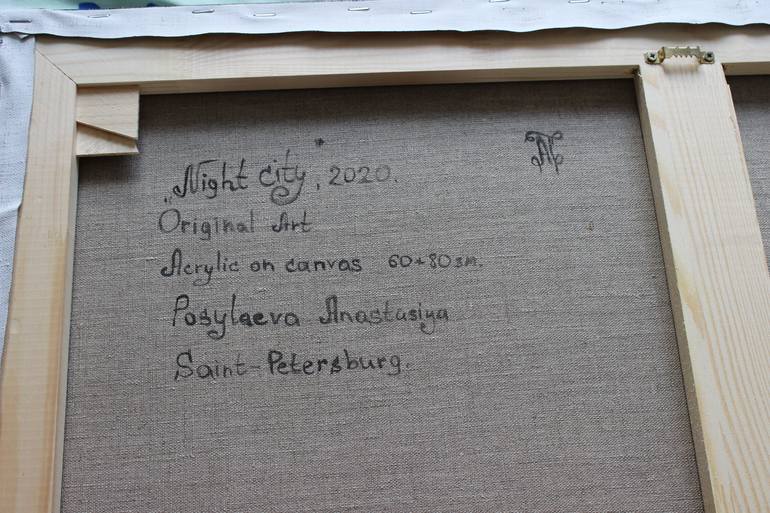 „Night city, 2020.
Original Art
Acrylic on canvas 60*80 sm.
Posylaeva Anastasiya
Saint-Petersburg.